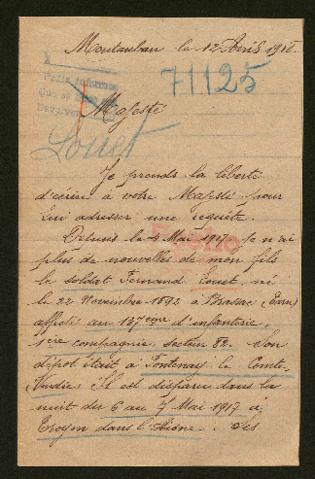 Montauban le 12 Avril 1918.
71125
Majesté
Louet
Je prends la liberté
d'écrire à votre Majesté pour
lui adresser une requête.
Depuis le 4 Mai 1917 je n'ai
plus de nouvelles de mon fils
le soldat Fernand Louet, né
le 22 Novembre 1892 à Brassac (Tarn)
affecté au 137eme d'infanterie,
1ere compagnie secteur 82. Son
dépot était à Fontenay le Comte
(Vendée) Il est disparu dans la
nuit du 6 au 7 Mai 1917 a
Troyon dans l'Aisne. Ses